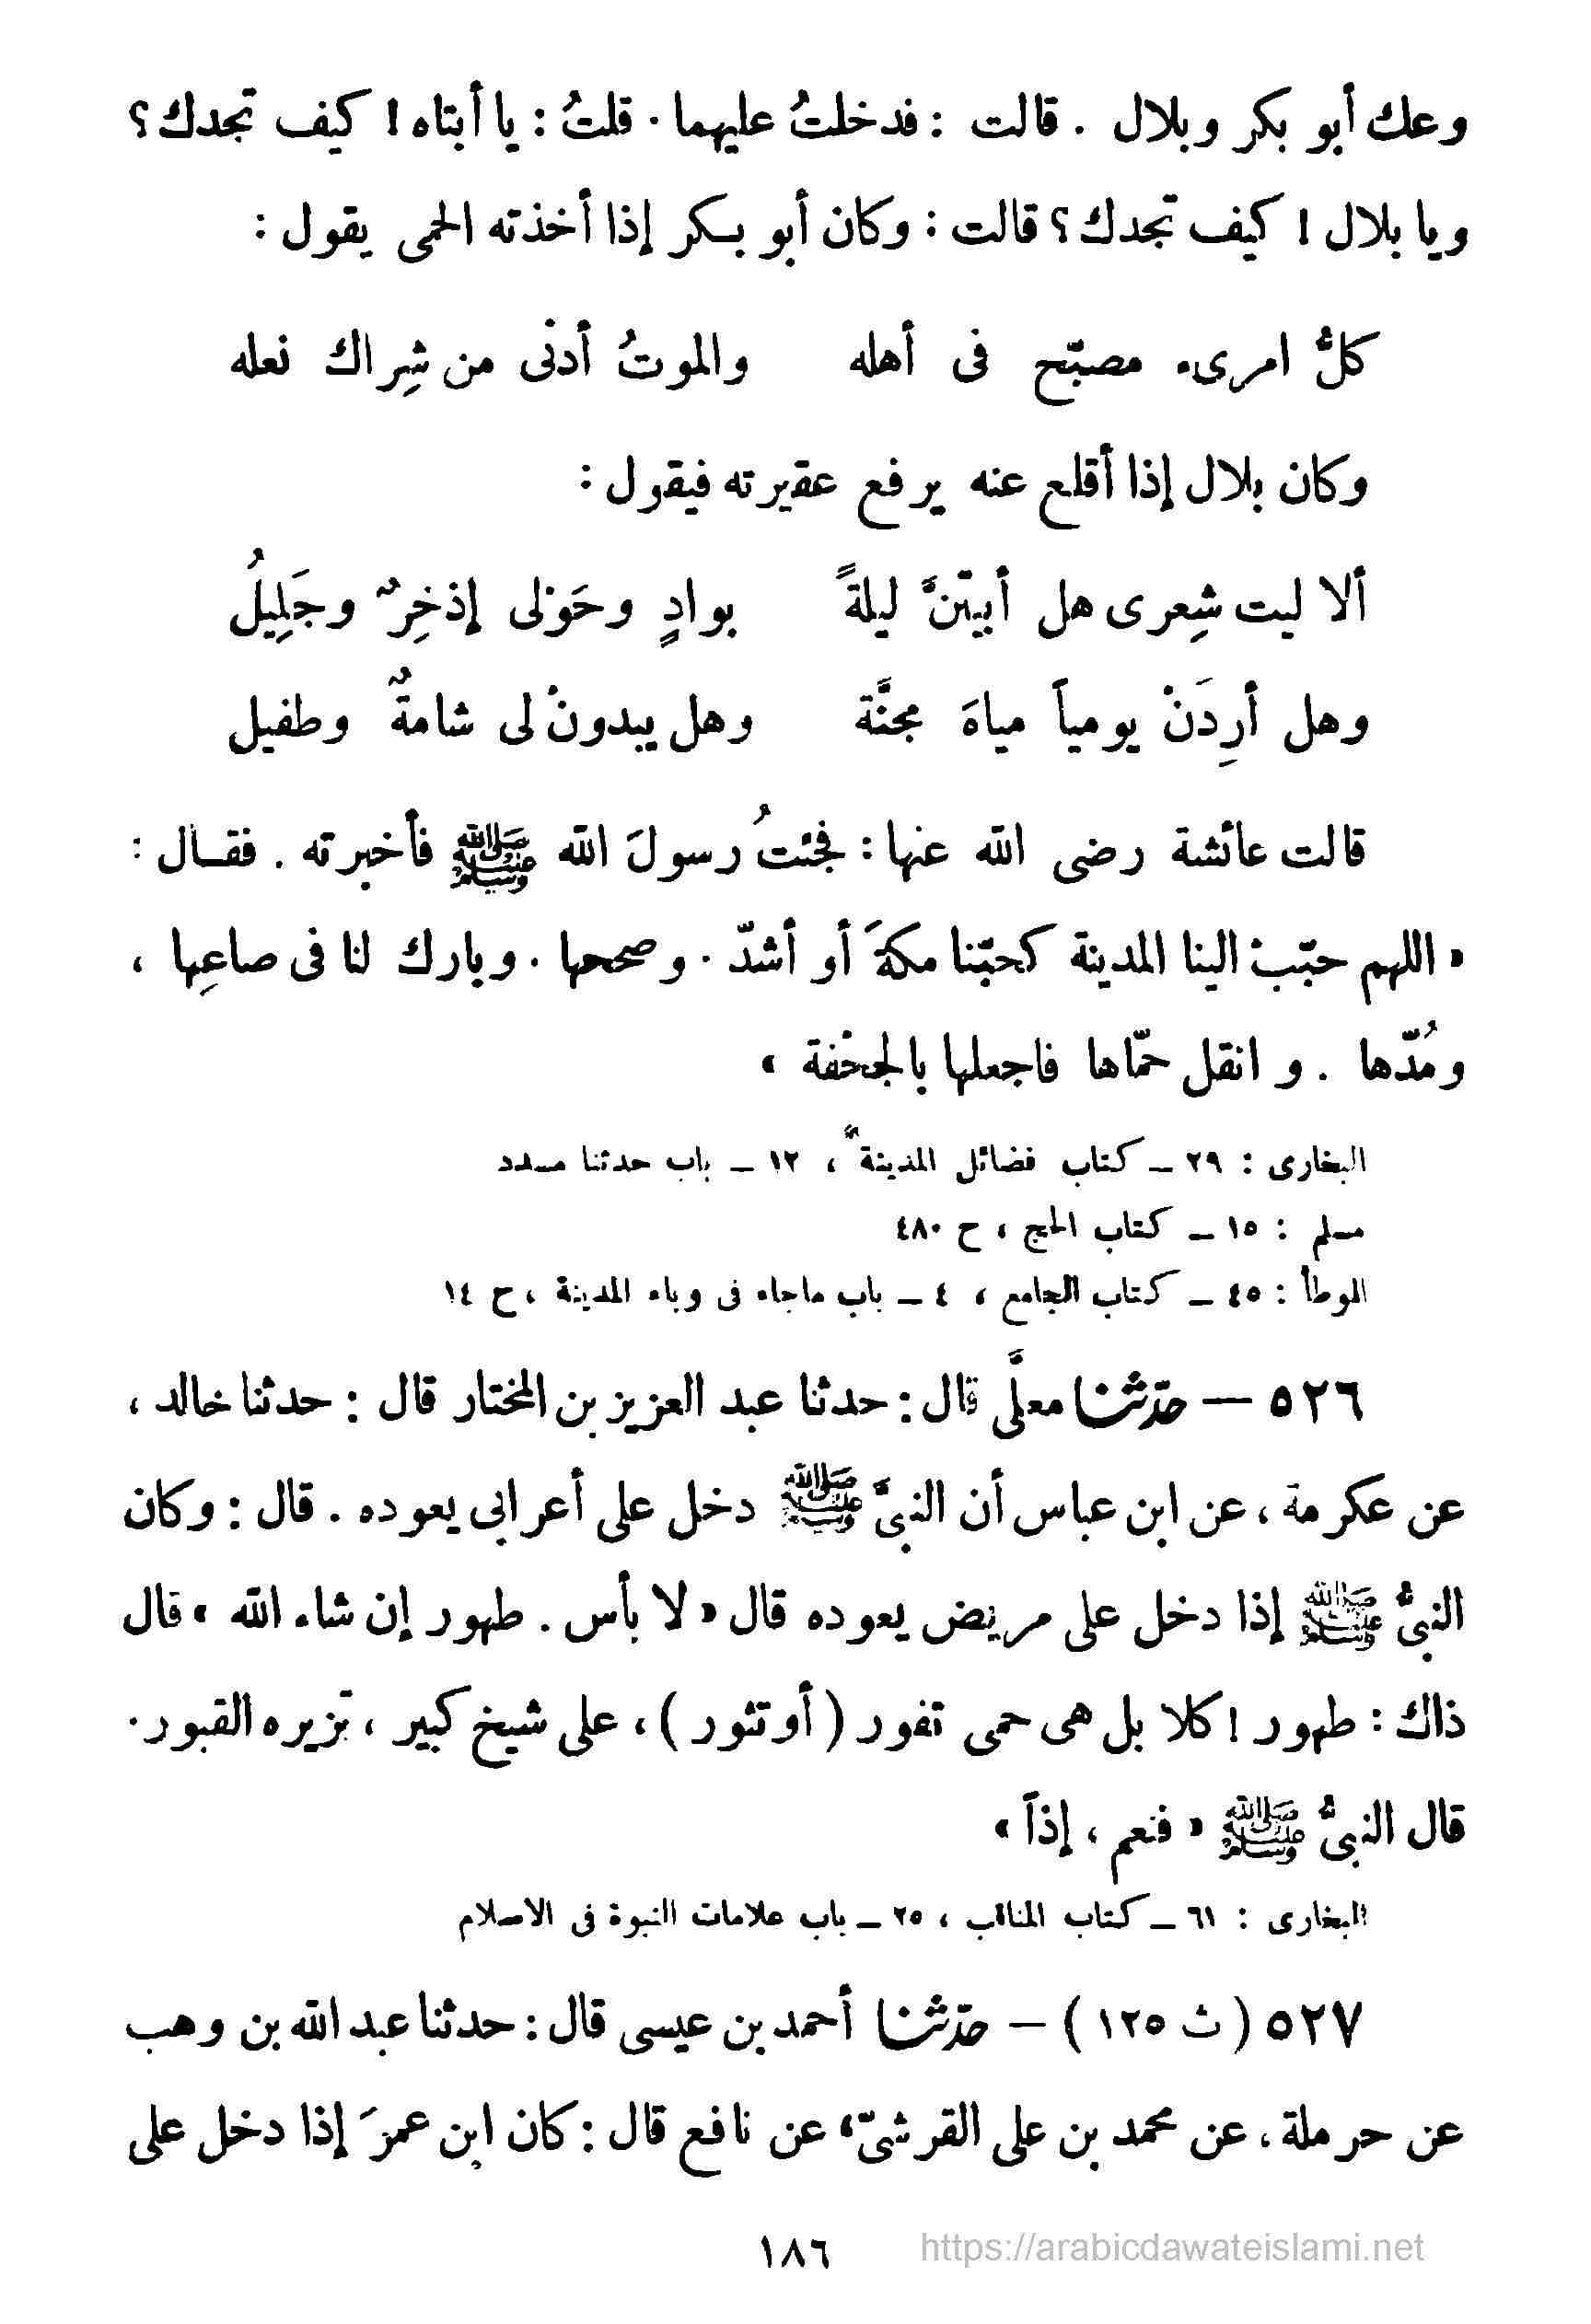 وعك أبو بكر وبلال . قالت : فدخلتُ عليهما . قلتُ : يا أبتاه ! كيف تجدك ؟
ويا بلال ! كيف تجدك ؟ قالت : وكان أبو بكر إذا أخذته الحمى يقول :
كلُّ امرىء مصبّح فى أهله والموتُ أدنى من شِراك نعله
وكان بلال إذا أقلع عنه يرفع عقيرته فيقول :
ألا ليت شِعرى هل أبيتنَّ ليلةً بوادٍ وحَوْلى إذخِرٌ وجَلِيلُ
وهل أرِدَنْ يومياً مياهَ مجنَّة وهل يبدونْ لى شامةٌ وطفيل
قالت عائشة رضى الله عنها : فجئتُ رسولَ الله ﷺ فأخبرته . فقال :
« اللهم حبّبْ الينا المدينة كحبّنا مكةَ أو أشدّ . وصححها . وبارك لنا فى صاعِها ،
ومُدّها . و انقل حمّاها فاجعلها بالجحْفة »
البخارى : ٢٩ – كتاب فضائل المدينة ، ١٢ – باب حدثنا مسدد
مسلم : ١٥ – كتاب الحج ، ح ٤٨٠
الموطأ : ٤٥ – كتاب الجامع ، ٤ – باب ماجاء فى وباء المدينة ، ح ١٤
٥٢٦ – حدّثنا معلَّى قال : حدثنا عبد العزيز بن المختار قال : حدثنا خالد ،
عن عكرمة ، عن ابن عباس أن النبىَّ ﷺ دخل على أعرابى يعوده . قال : وكان
النبىُّ ﷺ إذا دخل على مريض يعوده قال « لا بأس . طهور إن شاء الله » قال
ذاك : طهور ! كلا بل هى حمى تفور ( أو تثور ) ، على شيخ كبير ، تزيره القبور .
قال النبىُّ ﷺ « فنعم ، إذاً »
البخارى : ٦١ – كتاب المناقب ، ٢٥ – باب علامات النبوة فى الاسلام
٥٢٧ ( ث ١٢٥ ) – حدّثنا أحمد بن عيسى قال : حدثنا عبد الله بن وهب
عن حرملة ، عن محمد بن على القرشىّ ، عن نافع قال : كان ابن عمرَ إذا دخل على
١٨٦
https://arabicdawateislami.net